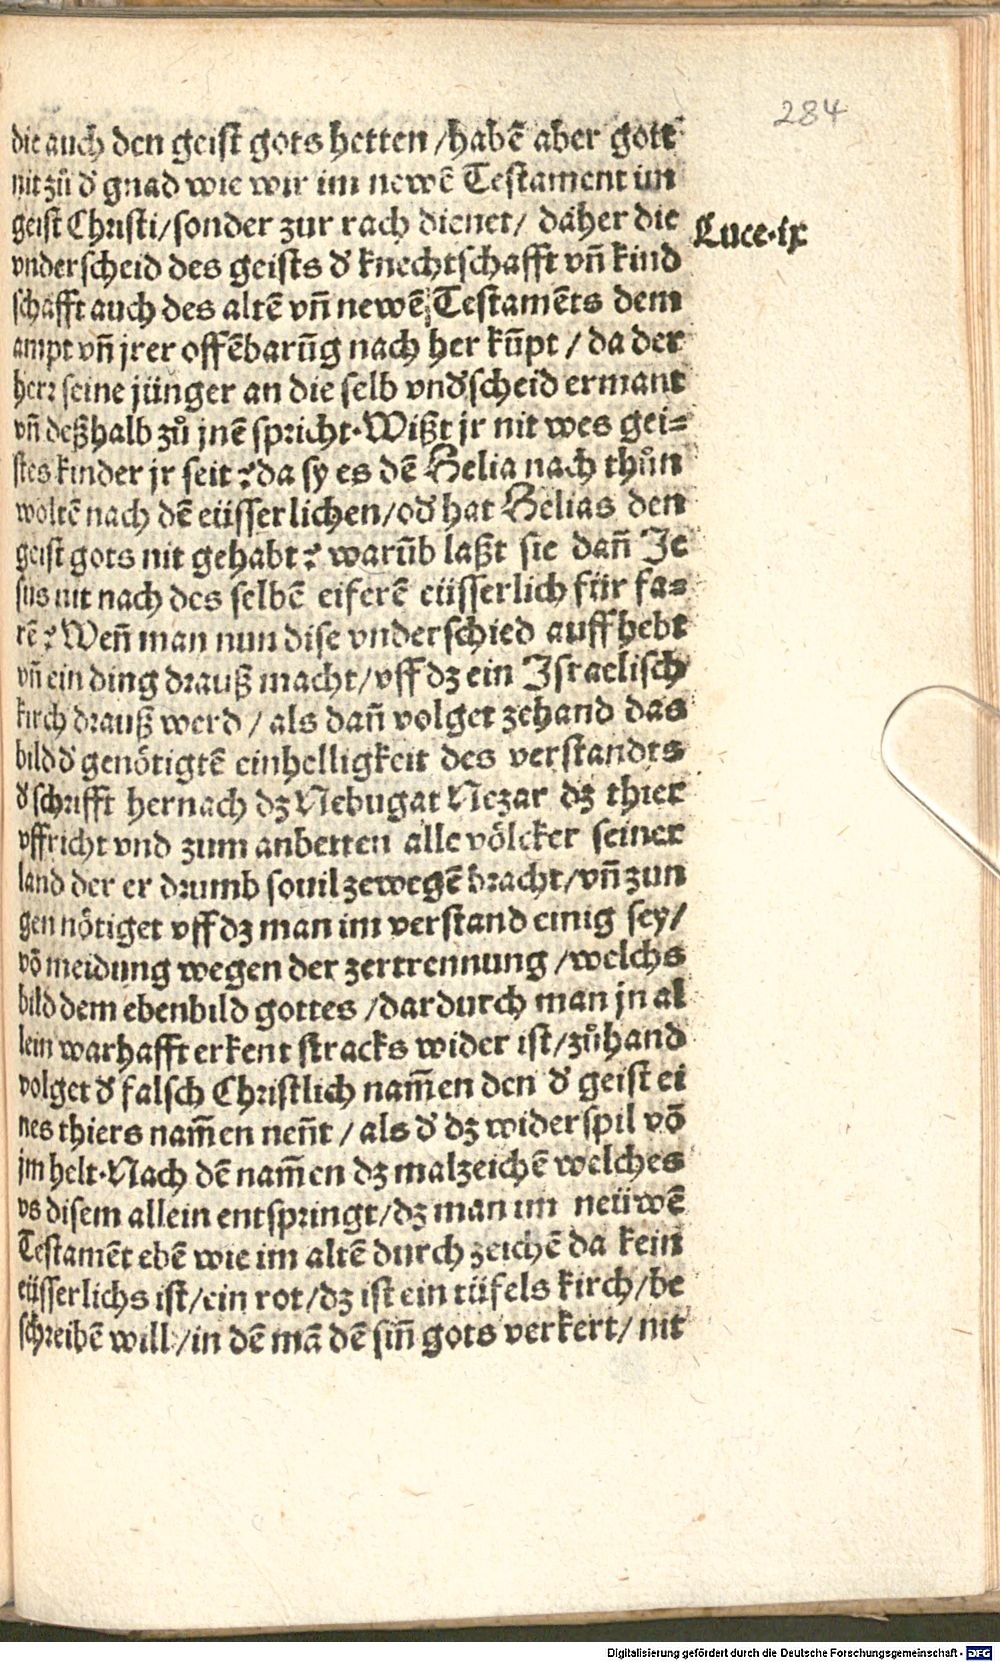 284
die auch den geist gots hetten /habē aber gott
nit zů d' gnad wie wir im newē Testament im
geist Christi/sonder zur rach dienet/ daher die
Luce.ix
vnderscheid des geists d' knechtschafft vn̄ kind
schafft auch des altē vn̄ newē Testamēts dem
ampt vn̄ jrer offēbarūg nach her kūpt / da der
herr seine jünger an die selb vnd'scheid ermant
vn̄ deßhalb zů jnē spricht. Wißt jr nit wes gei=
stes kinder jr seit? da sy es dē Helia nach thůn
woltē nach dē eüsserlichen/od' hat Helias den
geist gots nit gehabt? warūb laßt sie dan̄ Je
sus nit nach des selbē eiferē eüsserlich für fa=
rē? Wen̄ man nun dise vnderschied auffhebt
vn̄ ein ding drauß macht/vff dz ein Israelisch
kirch drauß werd / als dan̄ volget zehand das
bild d' genötigtē einhelligkeit des verstandts
d' schrifft hernach dz Nebugat Nezar dz thier
vffricht vnd zum anbetten alle völcker seiner
land der er drumb souil zewegē bracht/vn̄ zun
gen nötiget vff dz man im verstand einig sey/
vō meidung wegen der zertrennung /welchs
bild dem ebenbild gottes /dardurch man jn al
lein warhafft erkent stracks wider ist/zůhand
volget d' falsch Christlich nam̄en den d' geist ei
nes thiers nam̄en nen̄t / als d' dz widerspil vō
jm helt. Nach dē nam̄en dz malzeichē welches
vs disem allein entspringt/dz man im neüwē
Testamēt ebē wie im altē durch zeichē da kein
eüsserlichs ist/ein rot/dz ist ein tüfels kirch/be
schreibē will/in dē mā dē sin̄ gots verkert/ nit
Digitalisierung gefördert durch die Deutsche Forschungsgemeinschaft - DFG